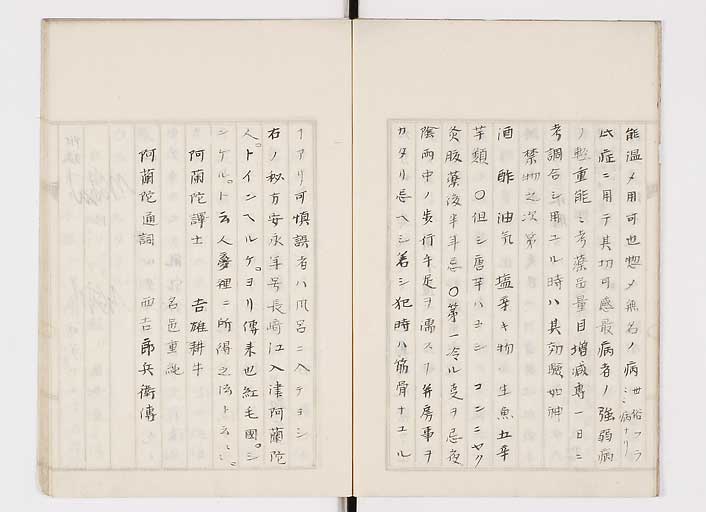 能温メ用可也惣メ無名ノ病世俗フラ〳〵病ナリ
此症ニ用テ其切可感最病者ノ強弱病
ノ軽重能ミ考薬品量目増減専一日ニ
考調合シ用ユル時ハ其効験如神
禁物之次第
酒 酢 油気 塩辛キ物 生魚 五辛
芋類 〇但シ唐芋ハヨシ コンニヤク
灸服薬後半年忌 〇第一冷ル夏ヲ忌夜
陰雨中ノ歩行手足ヲ濡スヿ并房事ヲ
カタク忌ヘシ若シ犯時ハ筋骨ナユル
ヿアリ可慎誤者ハ風呂ニ入テヨシ
右ノ秘方安永年号長崎江入津阿蘭陀
人。トインヘルゲ。ヨリ傳来也紅毛國。シ
ンケル。ト云人夢裡ニ所得之法ト云々
阿蘭陀譯士 吉雄耕牛
名邑重純
阿蘭陀通詞 西吉郎兵衛傳